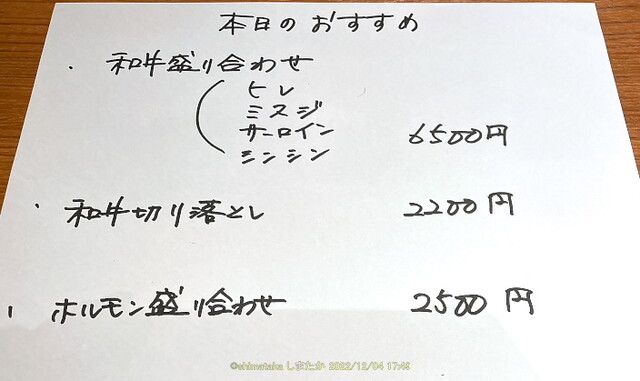 本日のおすすめ
・ 和牛盛り合わせ
ヒレ
ミスジ
サーロイン 6500円
シンシン
・ 和牛切り落とし 2200円
・ ホルモン盛り合わせ 2500円
©shimataka しまたか 2022/12/04 17:49